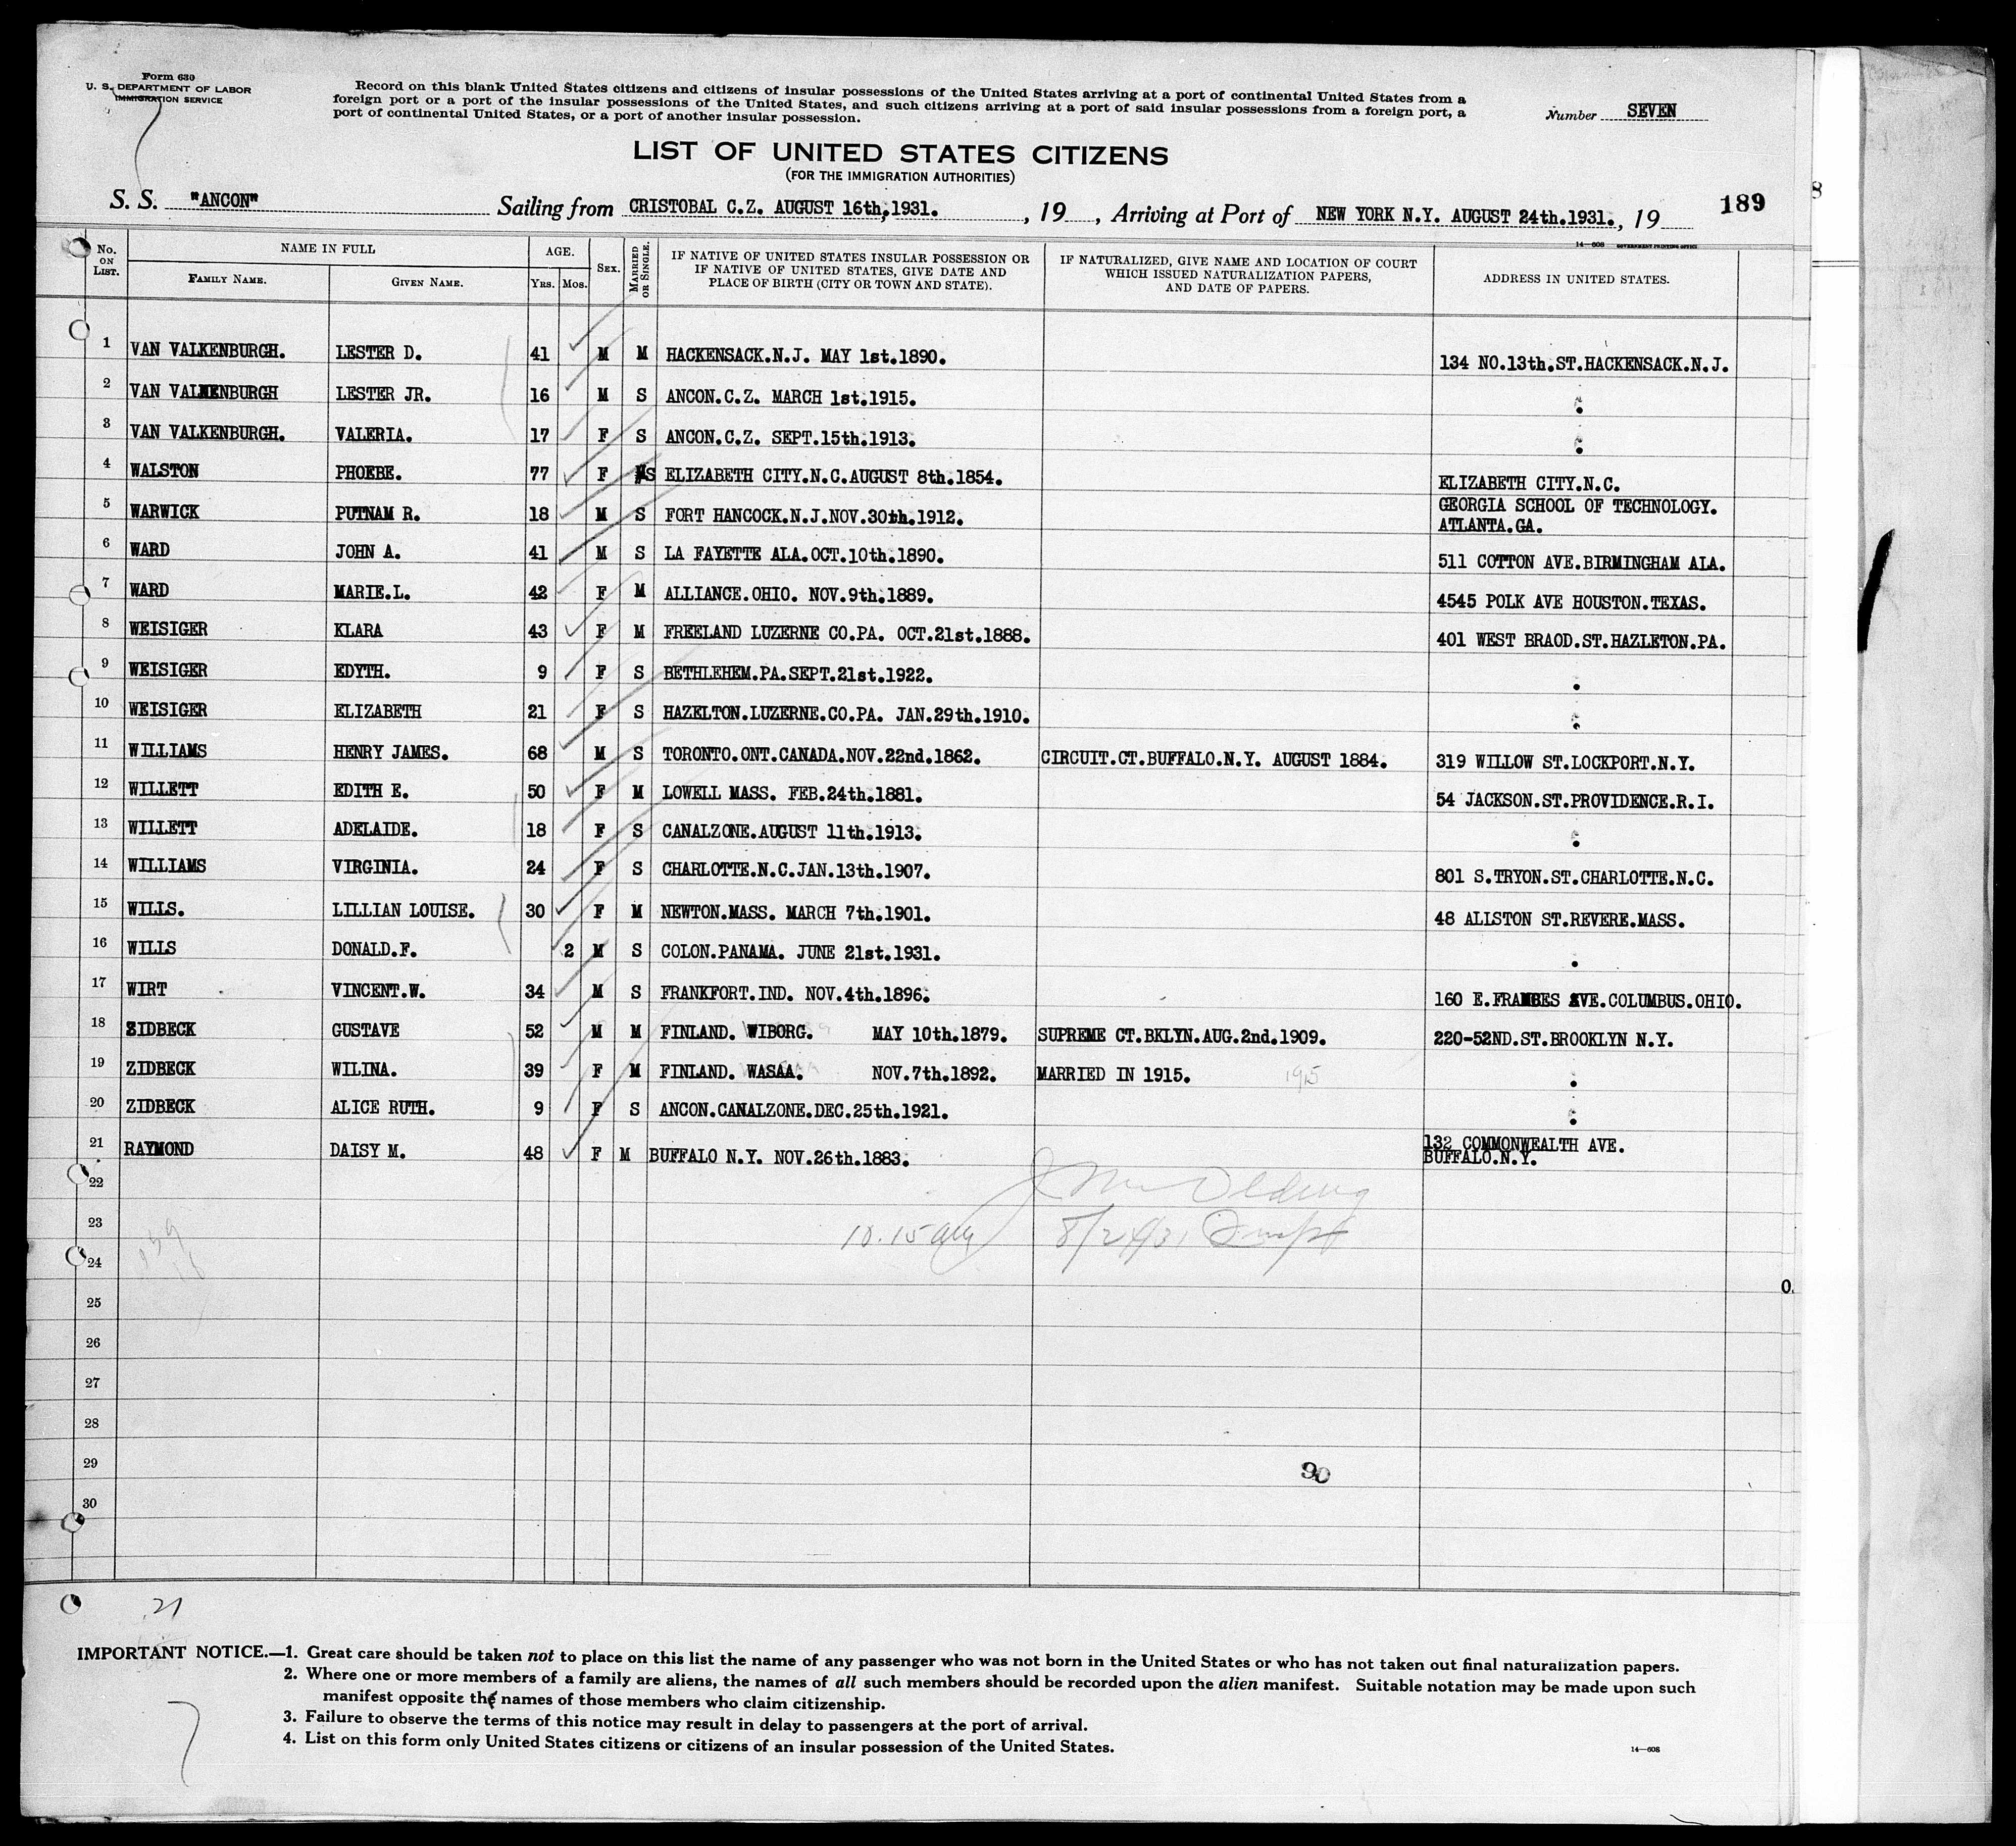 Form 630
U. S. DEPARTMENT OF LABOR
IMMIGRATION SERVICE
Record on this blank United States citizens and citizens of insular possessions of the United States arriving at a port of continental United States from a
foreign port or a port of the insular possessions of the United States, and such citizens arriving at a port of said insular possessions from a foreign port, a
port of continental United States, or a port of another insular possession.
Number SEVEN
LIST OF UNITED STATES CITIZENS
(FOR THE IMMIGRATION AUTHORITIES)
S. S. "ANCON" Sailing from CRISTOBAL C.Z. AUGUST 16th,1931. , 19 , Arriving at Port of NEW YORK N.Y. AUGUST 24th.1931. , 19
189
8
14—608 GOVERNMENT PRINTING OFFICE
No. ON LIST. NAME IN FULL FAMILY NAME. GIVEN NAME. AGE. YRS. MOS. SEX. MARRIED OR SINGLE. IF NATIVE OF UNITED STATES INSULAR POSSESSION OR IF NATIVE OF UNITED STATES, GIVE DATE AND PLACE OF BIRTH (CITY OR TOWN AND STATE). IF NATURALIZED, GIVE NAME AND LOCATION OF COURT WHICH ISSUED NATURALIZATION PAPERS, AND DATE OF PAPERS. ADDRESS IN UNITED STATES.
1 VAN VALKENBURGH. LESTER D. 41 M M HACKENSACK.N.J. MAY 1st.1890. 134 NO.13th.ST.HACKENSACK.N.J.
2 VAN VALKENBURGH LESTER JR. 16 M S ANCON.C.Z. MARCH 1st.1915. :
3 VAN VALKENBURGH. VALERIA. 17 F S ANCON.C.Z. SEPT.15th.1913. :
4 WALSTON PHOEBE. 77 F S ELIZABETH CITY.N.C.AUGUST 8th.1854. ELIZABETH CITY.N.C.
5 WARWICK PUTNAM R. 18 M S FORT HANCOCK.N.J.NOV.30th.1912. GEORGIA SCHOOL OF TECHNOLOGY.
ATLANTA.GA.
6 WARD JOHN A. 41 M S LA FAYETTE ALA.OCT.10th.1890. 511 COTTON AVE.BIRMINGHAM ALA.
7 WARD MARIE.L. 42 F M ALLIANCE.OHIO. NOV.9th.1889. 4545 POLK AVE HOUSTON.TEXAS.
8 WEISIGER KLARA 43 F M FREELAND LUZERNE CO.PA. OCT.21st.1888. 401 WEST BRAOD.ST.HAZLETON.PA.
9 WEISIGER EDYTH. 9 F S BETHLEHEM.PA.SEPT.21st.1922. .
10 WEISIGER ELIZABETH 21 F S HAZELTON.LUZERNE.CO.PA. JAN.29th.1910. :
11 WILLIAMS HENRY JAMES. 68 M S TORONTO.ONT.CANADA.NOV.22nd.1862. CIRCUIT.CT.BUFFALO.N.Y. AUGUST 1884. 319 WILLOW ST.LOCKPORT.N.Y.
12 WILLETT EDITH E. 50 F M LOWELL MASS. FEB.24th.1881. 54 JACKSON.ST.PROVIDENCE.R.I.
13 WILLETT ADELAIDE. 18 F S CANALZONE.AUGUST 11th.1913. :
14 WILLIAMS VIRGINIA. 24 F S CHARLOTTE.N.C.JAN.13th.1907. 801 S.TRYON.ST.CHARLOTTE.N.C.
15 WILLS. LILLIAN LOUISE. 30 F M NEWTON.MASS. MARCH 7th.1901. 48 ALISTON ST.REVERE.MASS.
16 WILLS DONALD.F. 2 M S COLON.PANAMA. JUNE 21st.1931. .
17 WIRT VINCENT.W. 34 M S FRANKFORT.IND. NOV.4th.1896. 160 E. AVE.COLUMBUS.OHIO.
18 ZIDBECK GUSTAVE 52 M M FINLAND. WIBORG. MAY 10th.1879. SUPREME CT.BKLYN.AUG.2nd.1909. 220-52ND.ST.BROOKLYN N.Y.
19 ZIDBECK WILINA. 39 F M FINLAND. WASAA. NOV.7th.1892. MARRIED IN 1915. 1915 :
20 ZIDBECK ALICE RUTH. 9 F S ANCON.CANALZONE.DEC.25th.1921. :
21 RAYMOND DAISY M. 48 F M BUFFALO N.Y. NOV.26th.1883. 132 COMMONWEALTH AVE.
BUFFALO.N.Y.
22
23
10.15 am 8/24/31
24
0.
25
26
27
28
29
90
30
21
IMPORTANT NOTICE.—1. Great care should be taken not to place on this list the name of any passenger who was not born in the United States or who has not taken out final naturalization papers.
2. Where one or more members of a family are aliens, the names of all such members should be recorded upon the alien manifest. Suitable notation may be made upon such
manifest opposite the names of those members who claim citizenship.
3. Failure to observe the terms of this notice may result in delay to passengers at the port of arrival.
4. List on this form only United States citizens or citizens of an insular possession of the United States.
14—608